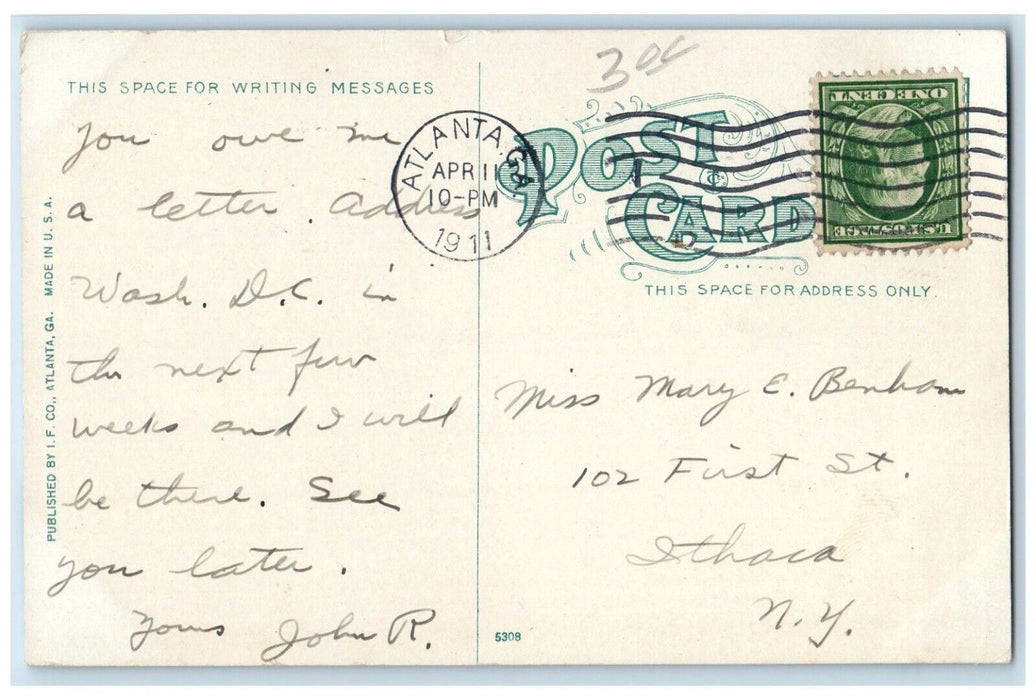 THIS SPACE FOR WRITING MESSAGES
You owe me
a letter. Address
Wash. D.C. in
the next few
weeks and I will
be there. See
you later.
Yours John R.
PUBLISHED BY I. F. CO., ATLANTA, GA. MADE IN U. S. A.
30c
ATLANTA, GA.
APR 11
10-PM
1911
POST
CARD
ONE CENT
U.S. POSTAGE
THIS SPACE FOR ADDRESS ONLY.
Miss Mary E. Benham
102 First St.
Ithaca
N.Y.
5308